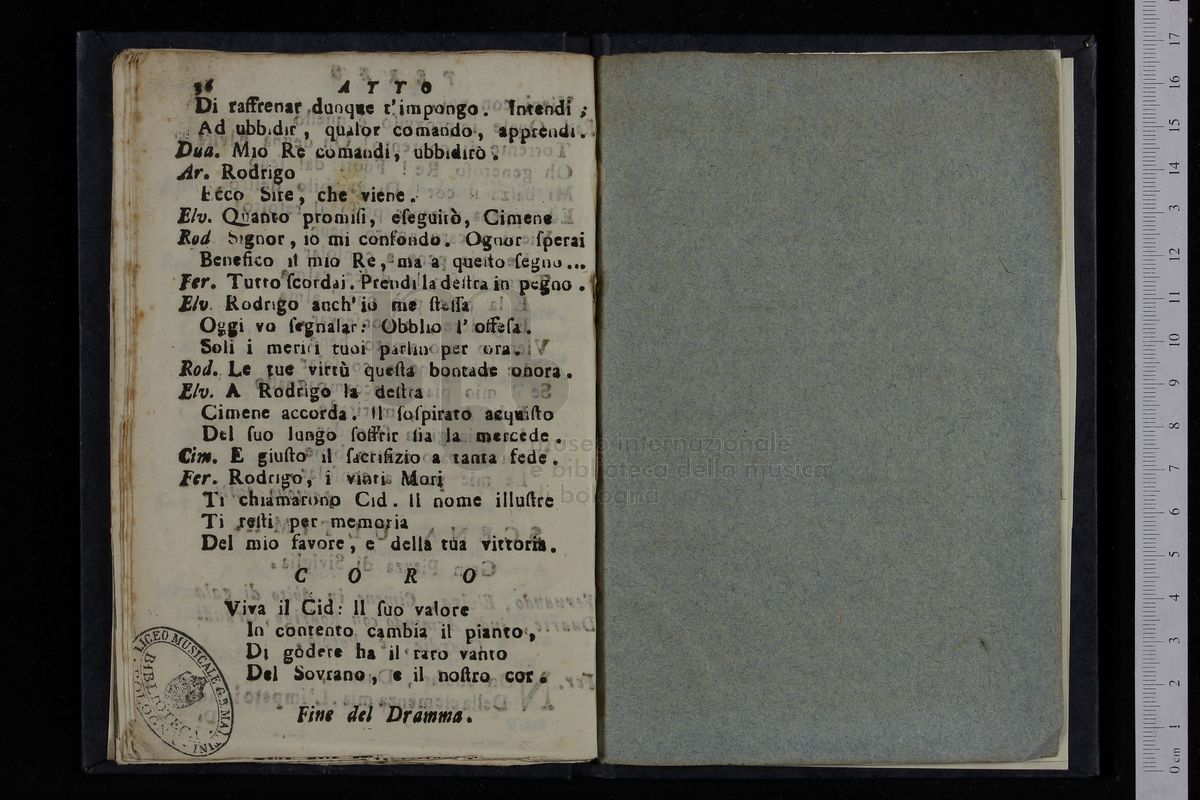 36 ATTO
Di raffrenar dunque t'impongo. Intendi;
Ad ubbidir, qualor comando, apprendi.
Dua. Mio Re comandi, ubbidirò.
Ar. Rodrigo
Ecco Sire, che viene.
Elv. Quanto promiſi, eſeguirò, Cimene
Rod Signor, io mi confondo. Ognor ſperai
Benefico il mio Re, ma a queſto ſegno...
Fer. Tutto ſcordai. Prendi la deſtra in pegno.
Elv. Rodrigo anch'io me ſteſſa
Oggi vo ſegnalar: Obblio l'offeſa.
Soli i meriti tuoi parlin per ora.
Rod. Le tue virtù queſta bontade onora.
Elv. A Rodrigo la deſtra
Cimene accorda. Il ſoſpirato acquiſto
Del ſuo lungo ſoffrir ſia la mercede.
Cim. E giuſto il ſacrifizio a tanta fede.
Fer. Rodrigo, i vinti Mori
Ti chiamarono Cid. Il nome illuſtre
Ti reſti per memoria
Del mio favore, e della tua vittoria.
CORO
Viva il Cid: Il ſuo valore
In contento cambia il pianto,
Di godere ha il raro vanto
Del Sovrano, e il noſtro cor.
Fine del Dramma.
LICEO MUSICALE G.B. MARTINI
BIBLIOTECA
BOLOGNA
museo internazionale
e biblioteca della musica
di bologna
0 cm 1 2 3 4 5 6 7 8 9 10 11 12 13 14 15 16 17